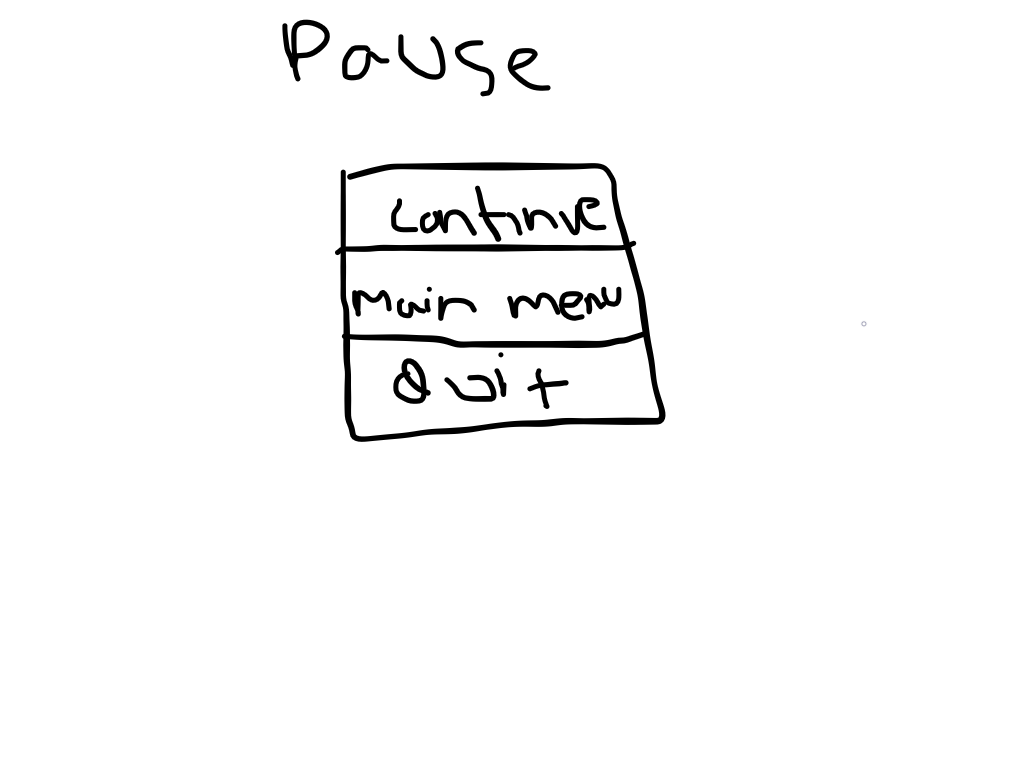 Pause
Continue
Main menu
Quit